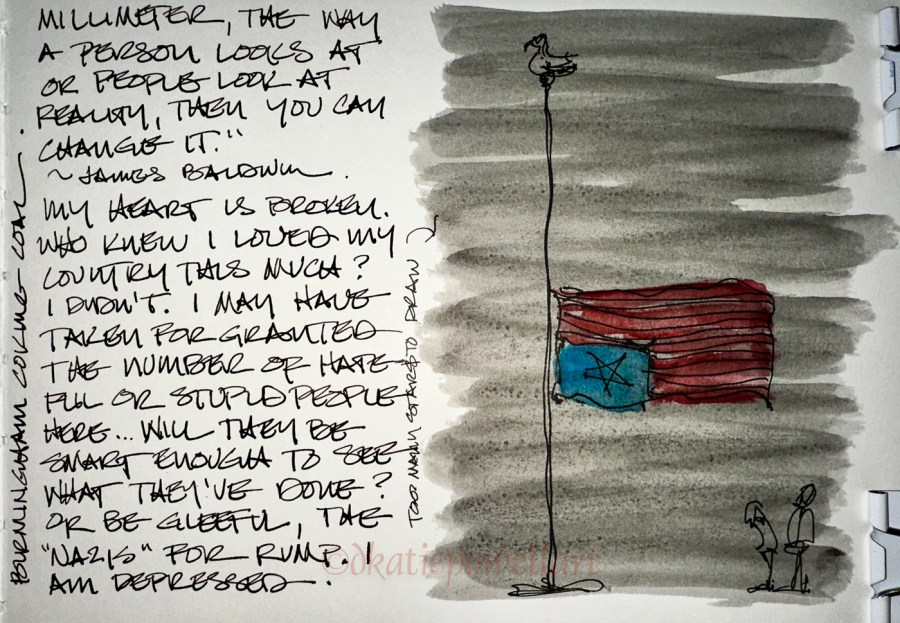 MILLIMETER, THE WAY
A PERSON LOOKS AT
OR PEOPLE LOOK AT
REALITY, THEN YOU CAN
CHANGE IT."
~JAMES BALDWIN.
MY HEART IS BROKEN.
WHO KNEW I LOVED MY
COUNTRY THIS MUCH?
I DIDN'T. I MAY HAVE
TAKEN FOR GRANTED
THE NUMBER OF HATE
FUL OR STUPID PEOPLE
HERE... WILL THEY BE
SMART ENOUGH TO SEE
WHAT THEY'VE DONE?
OR BE GLEEFUL, THE
"NAZIS" FOR RUMP. I
AM DEPRESSED.
TOO MANY STARS TO DRAW
©dkatiepowellart